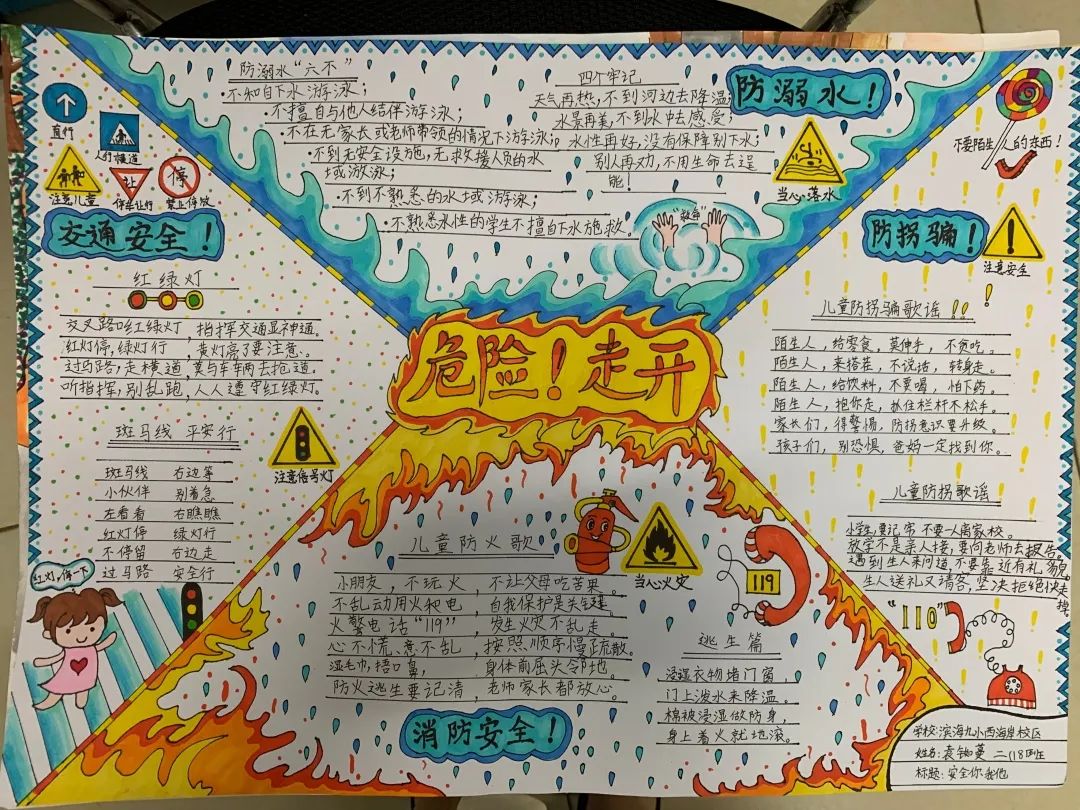 防溺水“六不”
·不私自下水游泳；
·不擅自与他人结伴游泳；
·不在无家长或老师带领的情况下游泳；
·不到无安全设施，无救援人员的水
域游泳；
·不到不熟悉的水域游泳；
·不熟悉水性的学生不擅自下水施救。
四个牢记
天气再热，不到河边去降温；
水景再美，不到水中去感受；
水性再好，没有保障别下水；
别人再劝，不用生命去逞
能！
防溺水！
当心落水
“救命”
直行
人行横道
注意儿童
让
停车让行
停
禁止停放
交通安全！
红绿灯
交叉路口红绿灯，指挥交通显神通。
红灯停，绿灯行，黄灯亮了要注意。
过马路，走横道，莫与车辆去抢道。
听指挥，别乱跑，人人遵守红绿灯。
斑马线 平安行
斑马线 右边等
小伙伴 别着急
左看看 右瞧瞧
红灯停 绿灯行
不停留 右边走
过马路 安全行
注意信号灯
红灯，停一下
危险！走开
不要陌生人的东西！
防拐骗！
注意安全
儿童防拐骗歌谣！！
陌生人，给零食，莫伸手，不贪吃。
陌生人，来搭茬，不说话，转身走。
陌生人，给饮料，不要喝，怕下药。
陌生人，抱你走，抓住栏杆不松手。
家长们，得警惕，防拐意识要升级。
孩子们，别恐惧，爸妈一定找到你。
儿童防拐歌谣
小学生，要记牢，不要一人离家校。
放学不是亲人接，要向老师去报告。
遇到生人来问道，不要靠近有礼貌。
生人送礼又请客，坚决拒绝快走
掉。
“110”
儿童防火歌
小朋友，不玩火，不让父母吃苦果。
不乱动用火和电，自我保护是关键。
火警电话“119”，发生火灾不乱走。
心不慌，意不乱，按照顺序慢疏散。
湿毛巾，捂口鼻，身体前屈头令阝也。
防火逃生要记清，老师家长都放心。
当心火灾
119
逃生篇
浸湿衣物堵门窗，
门上泼水来降温。
棉被浸湿做防身，
身上着火就地滚。
消防安全！
学校：滨海九小西海岸校区
标题：安全你我他